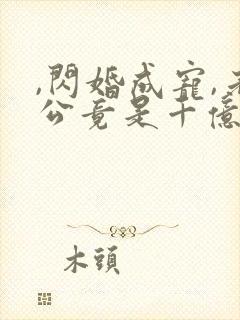 ,閃婚成寵,老
公竟是十億
木頭